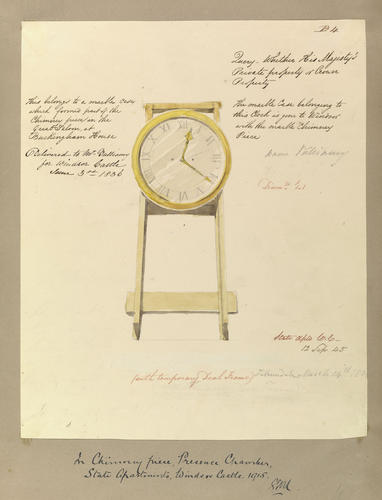 D 4
Query. Whether His Majesty's
Private property or Crown
Property
This belongs to a marble case
which formed part of the
Chimney piece in the
Great Saloon, at
Buckingham House
Delivered to Mr Vulliamy
for Windsor Castle
June 3rd 1836
The marble Case belonging to
this Clock is gone to Windsor
with the marble Chimney
Piece
name Vulliamy
State Apts W.C.
12 Sep 45
(with temporary Deal Frame)
In Chimney piece, Presence Chamber,
State Apartments, Windsor Castle. 1915.